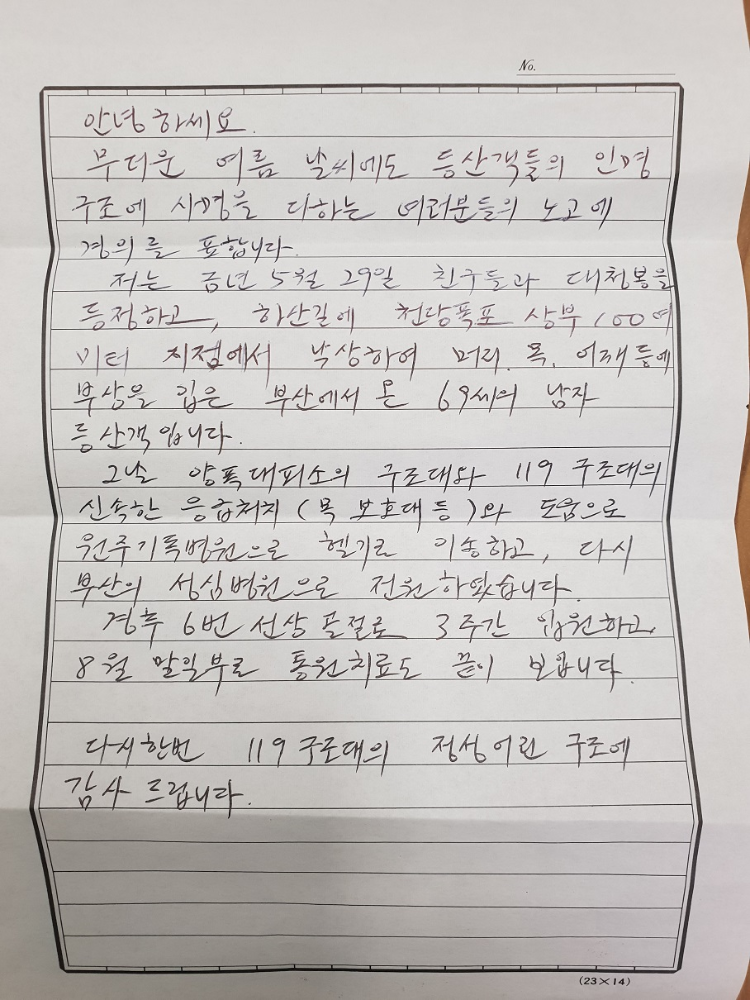 No.
안녕하세요.
무더운 여름 날씨에도 등산객들의 인명
구조에 사명을 다하는 여러분들의 노고에
경의를 표합니다.
저는 금년 5월 29일 친구들과 대청봉을
등정하고, 하산길에 천당폭포 상부 100여
미터 지점에서 낙상하여 머리. 목. 어깨 등에
부상을 입은 부산에서 온 69세의 남자
등산객입니다.
그날 양폭대피소의 구조대와 119 구조대의
신속한 응급처치 (목 보호대 등)와 도움으로
원주기독병원으로 헬기로 이송하고, 다시
부산의 성심병원으로 전원하였습니다.
경추 6번 선상 골절로 3주간 입원하고,
8월 말일부로 통원치료도 끝이 보입니다.
다시한번 119 구조대의 정성어린 구조에
감사 드립니다.
(23×14)